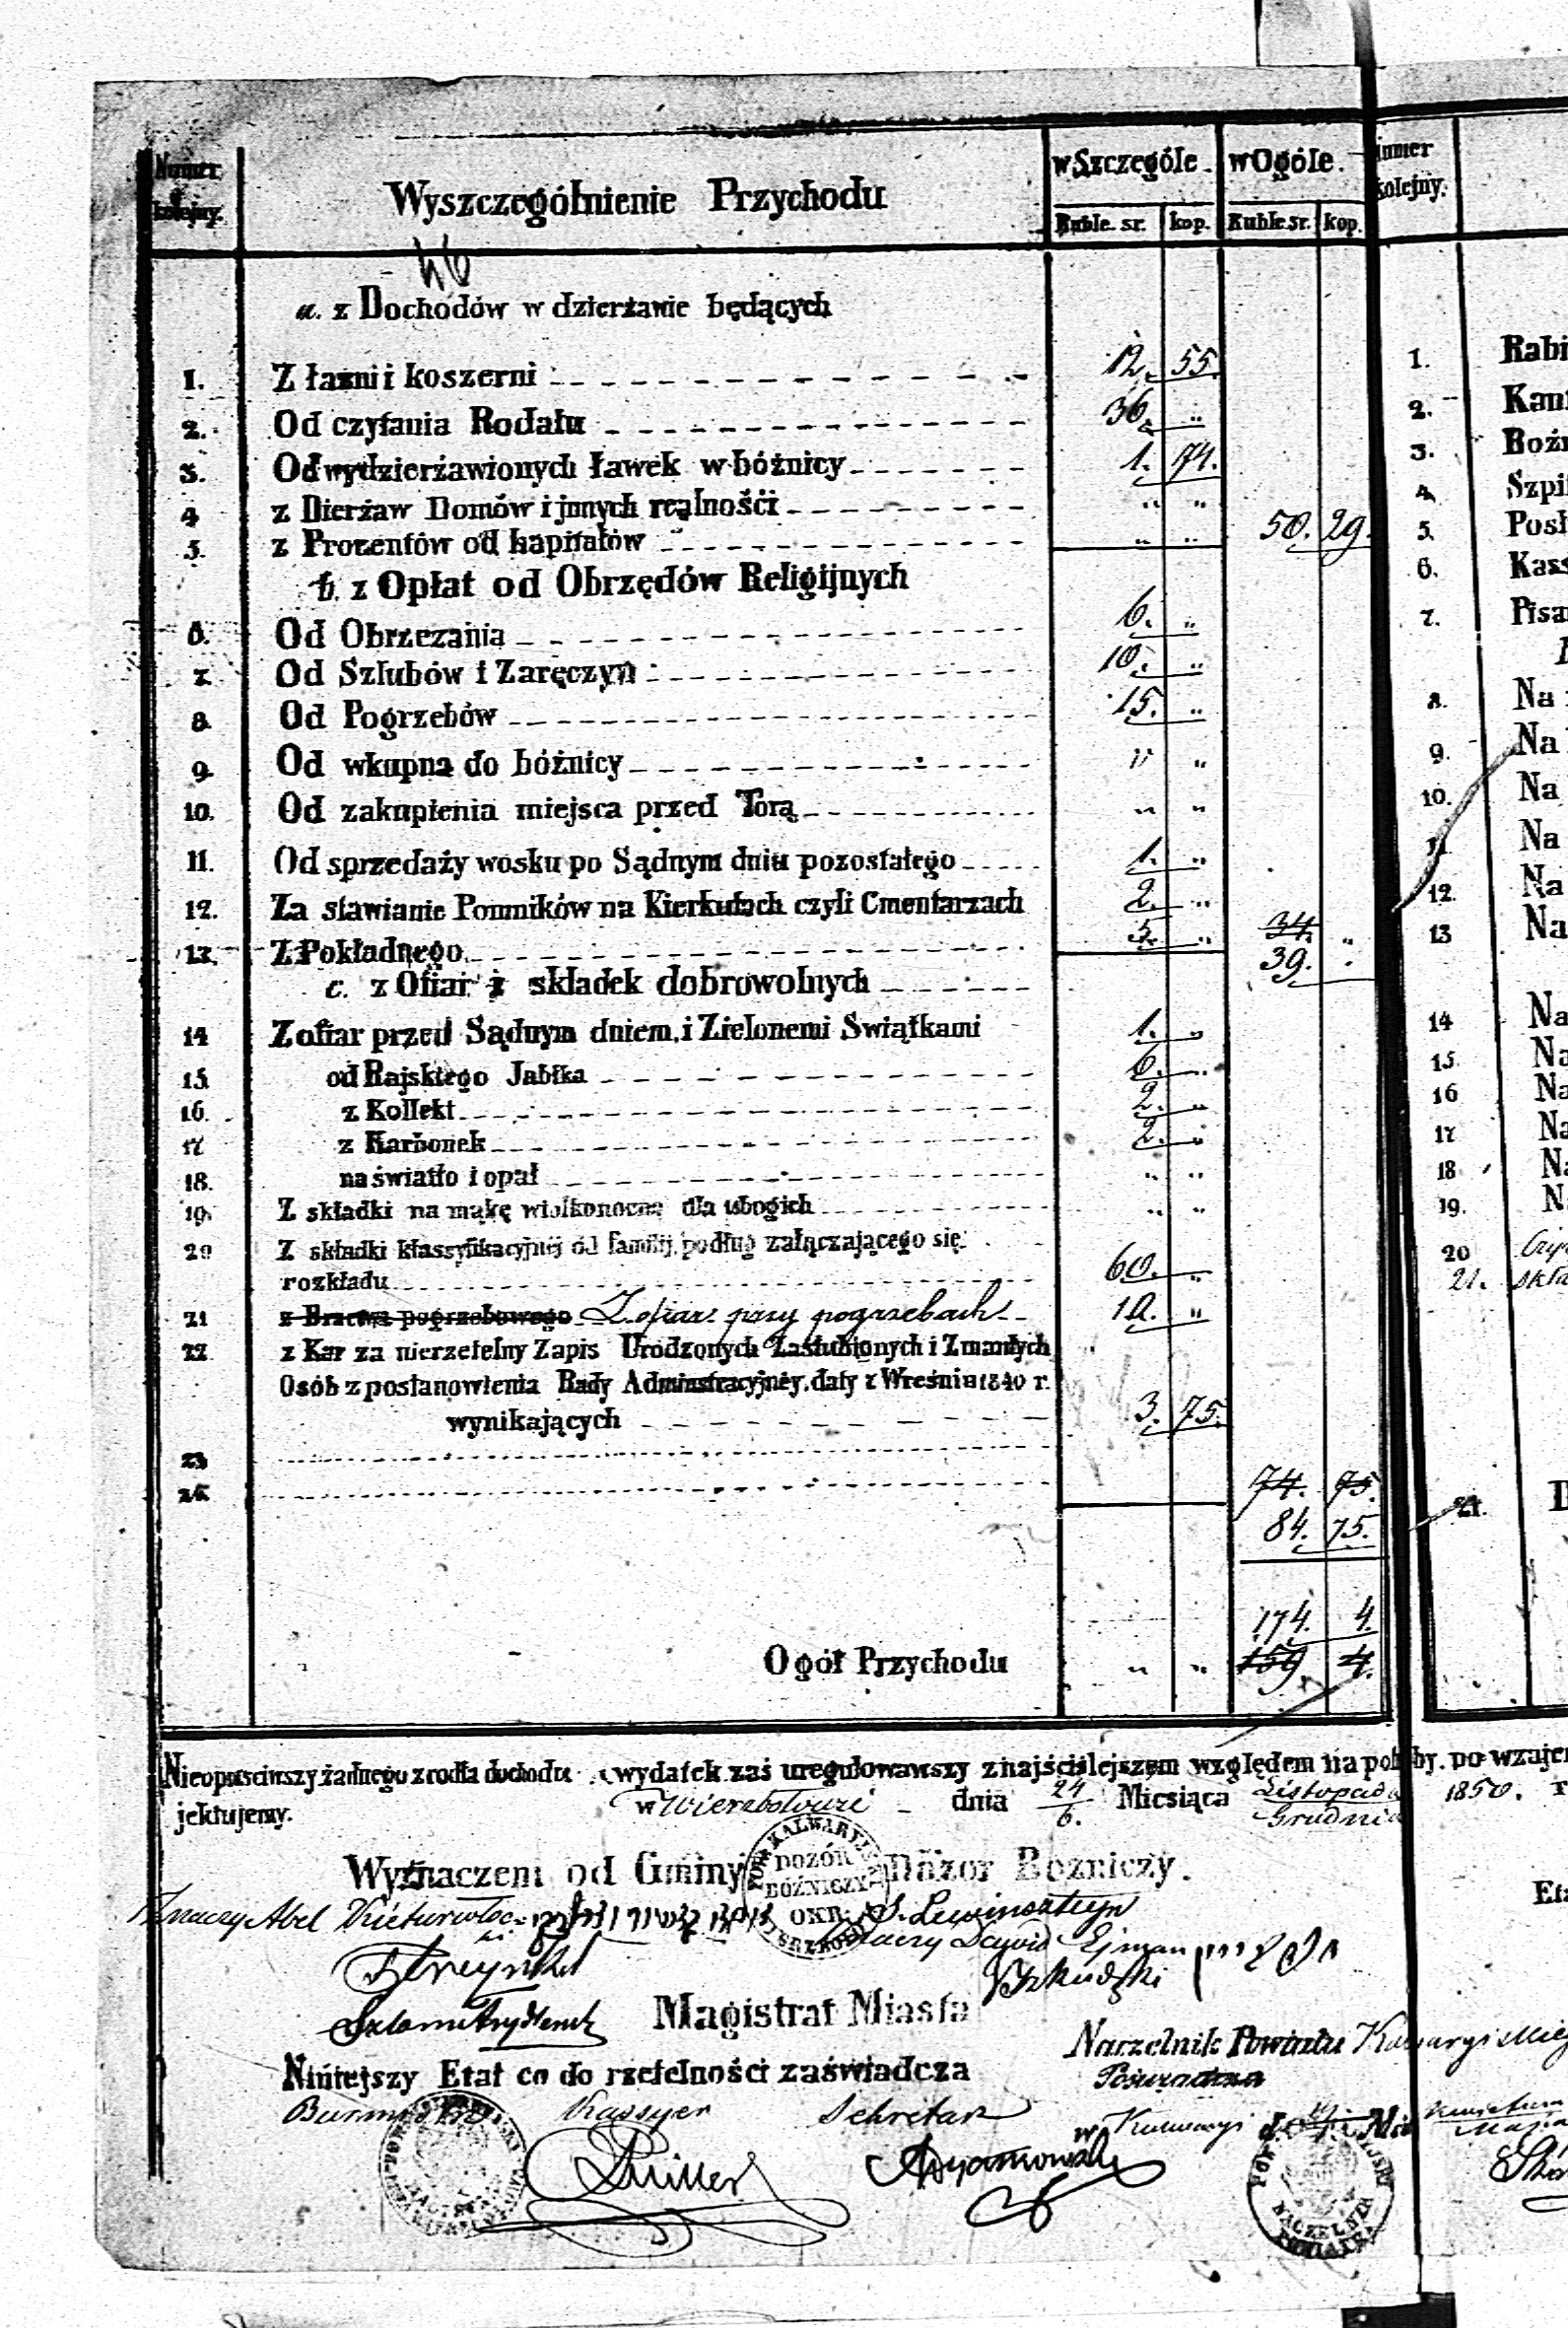 Numer kolejny.
Wyszczególnienie Przychodu
w Szczególe. w Ogóle.
Ruble. sr. kop. Ruble sr. kop.
a. z Dochodów w dzierżawie będących
1. Z łaźni i koszerni 12. 55.
2. Od czytania Rodału 36. "
3. Od wydzierżawionych ławek w bóżnicy 1. 74.
4 z Dierżaw Domów i jnnych realności " "
5. z Procentów od kapitałów " " 50. 29.
b. z Opłat od Obrzędów Religijnych
6. Od Obrzezania 6. "
7. Od Szlubów i Zaręczyn 10. "
8. Od Pogrzebów 15. "
9. Od wkupna do bóżnicy " "
10. Od zakupienia miejsca przed Torą " "
11. Od sprzedaży wosku po Sądnym dniu pozostałego 1. "
12. Za stawianie Pomników na Kierkutach czyli Cmentarzach 2. "
13. Z Pokładnego 5. " 34. "
39. "
c. z Ofiar i składek dobrowolnych
14 Z ofiar przed Sądnym dniem, i Zielonemi Swiątkami 1. "
15. od Rajskiego Jabłka 6. "
16. z Kollekt 2. "
17 z Karbonek 2. "
18. na światło i opał " "
19. Z składki na mąkę wielkonocną dla ubogich " "
20 Z składki klassyfikacyjnéj od familij, podług załączającego się
rozkładu 60. "
21 z Bractwa pogrzebowego Z ofiar przy pogrzebach 10. "
22 z Kar za nierzetelny Zapis Urodzonych Zaslubionych i Zmarłych
Osób z postanowienia Rady Administracyjnéy, daty z Wreśnia 1840 r.
wynikających 3. 75.
23
24
74. 75.
84. 75.
174. 4.
Ogół Przychodu " " 159. 4.
Nieopuściwszy żadnego zrodła dochodu i wydatek zaś uregulowawszy z najściślejszem względem na potrzeby, po wzajem
jektujemy. w Wierzbołowie dnia 24/6. Miesiąca Listopada/Grudnia 1850. r
Wyznaczeni od Gminy Dozor Bozniczy.
DOZÓR BÓŻNICZY OKR.
Znaczy Abel S. Lewinszteyn
Znaczy Dawid Ejman
Magistrat Miasta
Naczelnik Powiatu
Niniejszy Etat co do rzetelności zaświadcza
Burmistrz Kassyer Sekretarz
w Kalwaryi
Miller
NACZELNIK POWIATU
Numer kolejny.
1. Rabi
2. Kan
3. Bożn
4. Szpi
5. Posł
6. Kass
7. Pisa
8. Na
9. Na
10. Na
11. Na
12. Na
13 Na
14 Na
15. Na
16 Na
17 Na
18 Na
19. N
20
21. skła
Eta